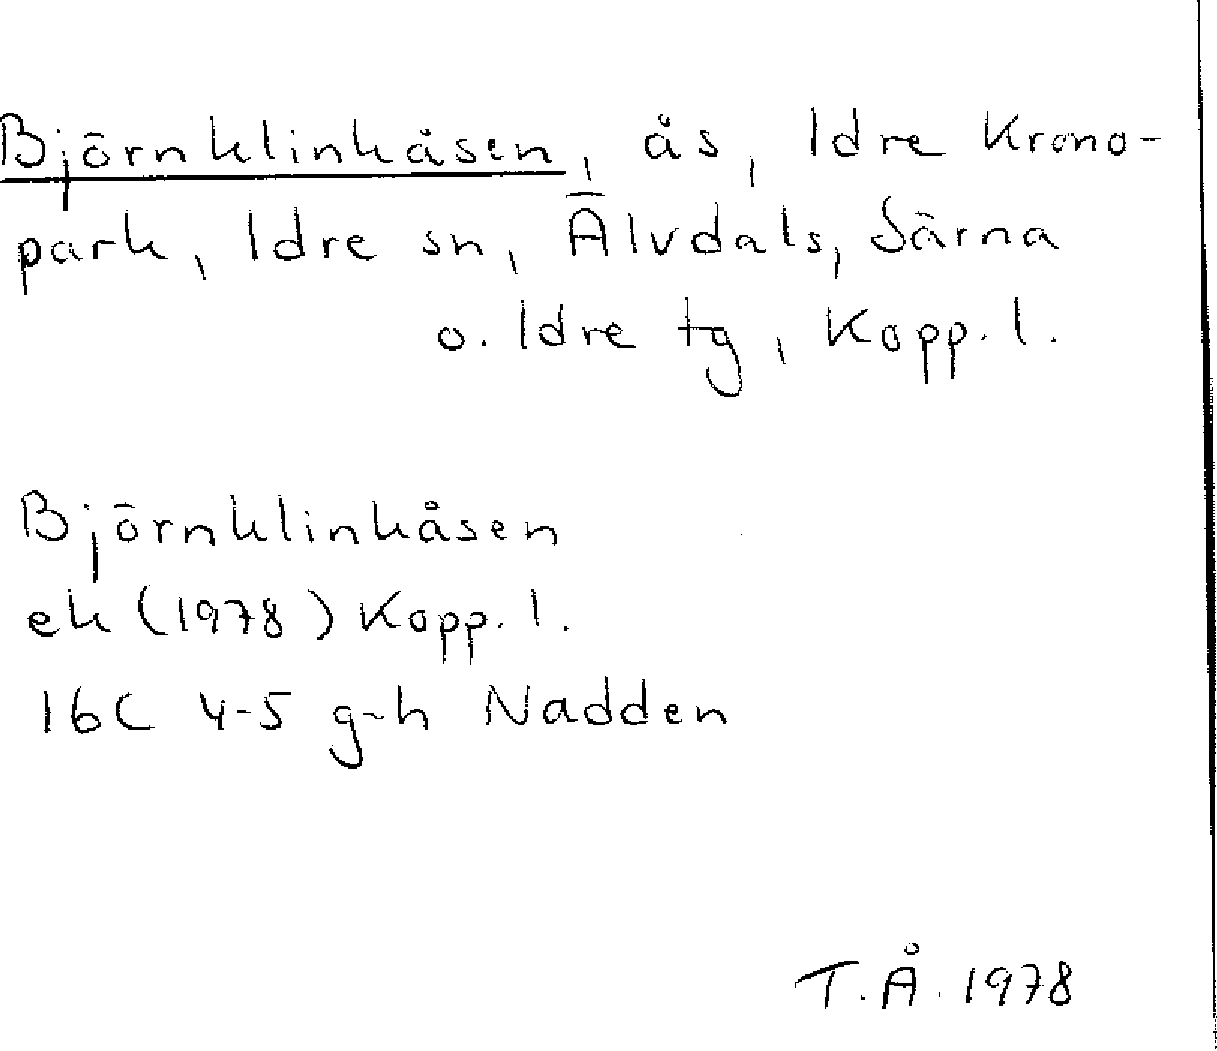 Björnklinkåsen, ås, Idre Krono-
park, Idre sn, Älvdals, Särna
o. Idre tg, Kopp. l.
Björnklinkåsen
ek (1978) Kopp. l.
16C 4-5 g-h Nadden
T.Å. 1978